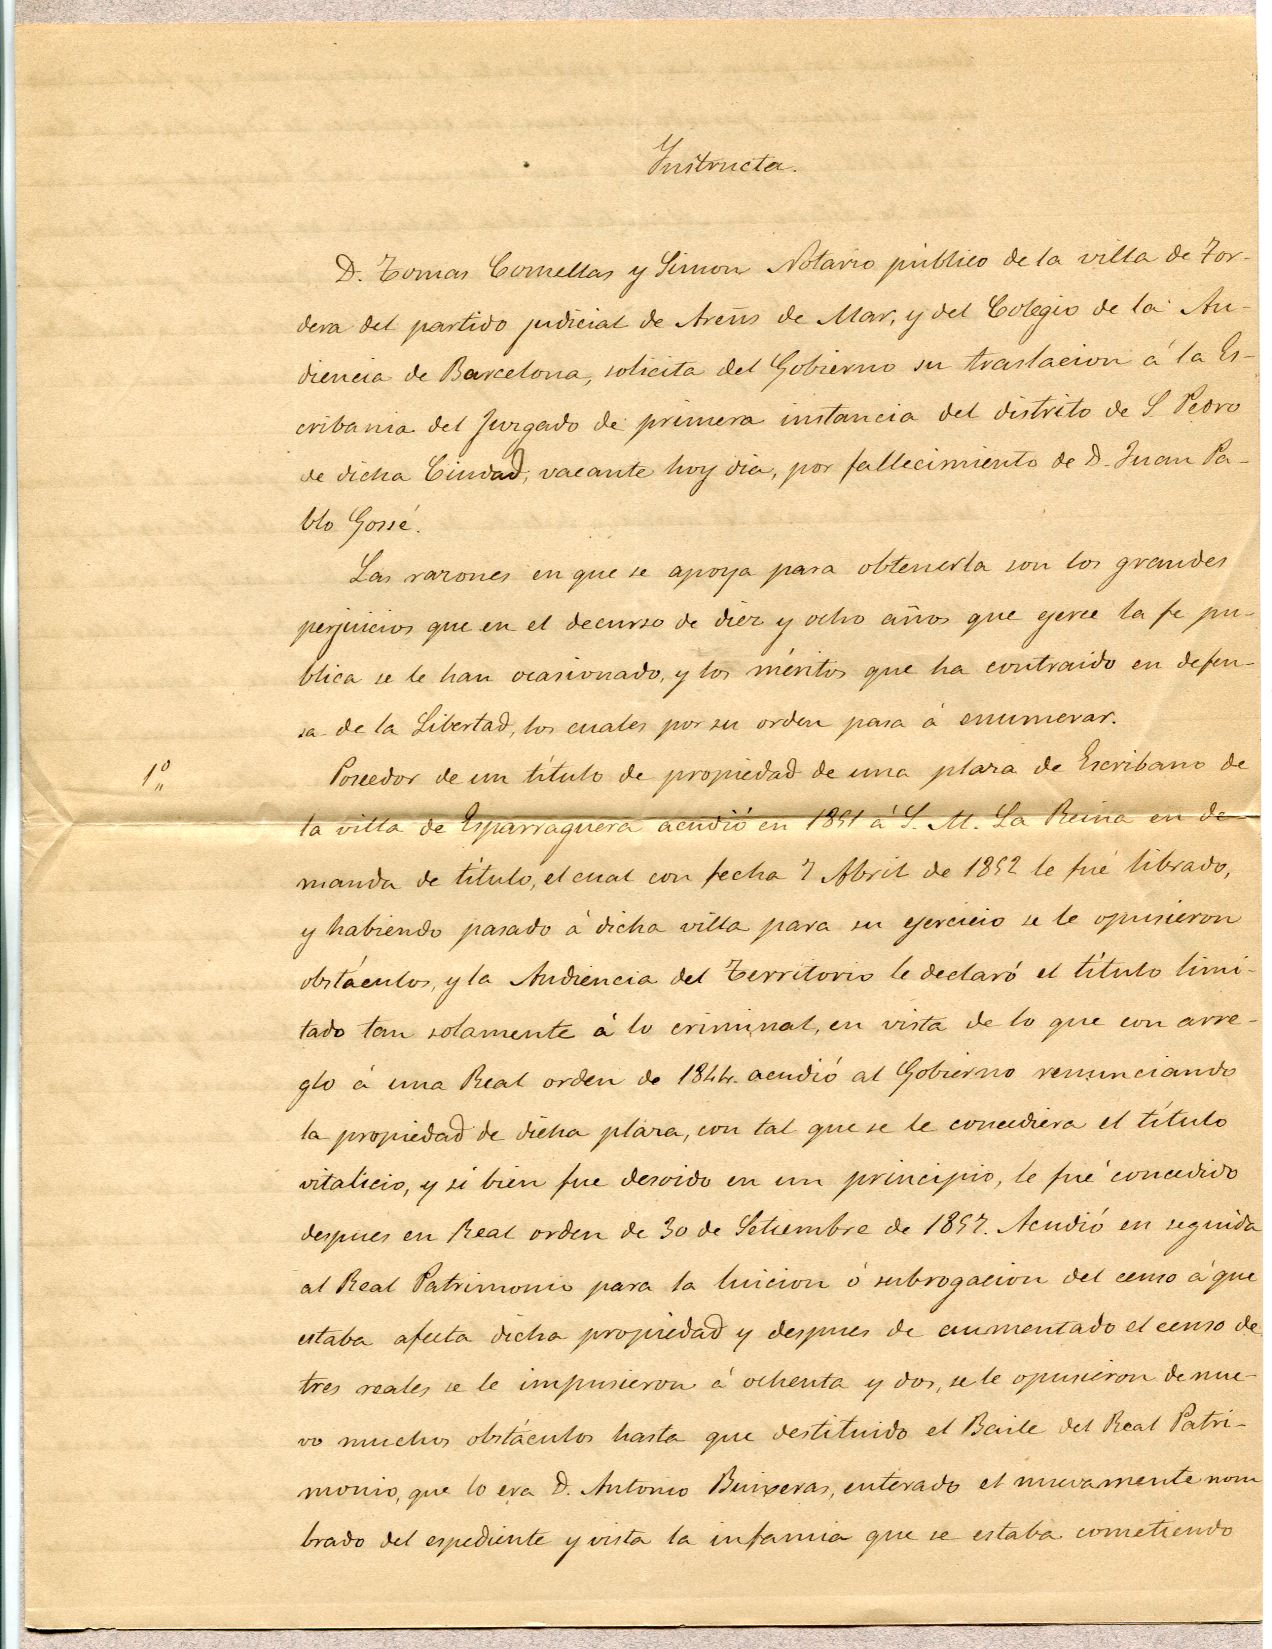 Instructa.
D. Tomas Comellas y Simon Notario público de la villa de Tor-
dera del partido judicial de Areñs de Mar, y del Colegio de la Au-
diencia de Barcelona, solicita del Gobierno su traslacion á la Es-
cribania del Juzgado de primera instancia del distrito de S Pedro
de dicha Ciudad, vacante hoy dia, por fallecimiento de D. Juan Pa-
blo Gossé.
Las razones en que se apoya para obtenerla son los grandes
perjuicios que en el decurso de diez y ocho años que ejerce la fe pu-
blica se le han ocasionado, y los méritos que ha contraido en defen-
sa de la Libertad, los cuales por su orden pasa á enumerar.
1º Poseedor de un título de propiedad de una plaza de Escribano de
la villa de Esparraguera acudió en 1851 á S. M. La Reina en de-
manda de título, el cual con fecha 7 Abril de 1852 le fué librado,
y habiendo pasado á dicha villa para su ejercicio se le opusieron
obstáculos, y la Audiencia del Territorio le declaró el título limi-
tado tan solamente á lo criminal, en vista de lo que con arre-
glo á una Real orden de 1844. acudió al Gobierno renunciando
la propiedad de dicha plaza, con tal que se le concediera el título
vitalicio, y si bien fue desoido en un principio, le fué concedido
despues en Real orden de 30 de Setiembre de 1857. Acudió en seguida
al Real Patrimonio para la luicion ó subrogacion del censo á que
estaba afecta dicha propiedad y despues de aumentado el censo de
tres reales se le impusieron á ochenta y dos, se le opusieron de nue-
vo muchos obstáculos hasta que destituido el Baile del Real Patri-
monio, que lo era D. Antonio Buxeras, enterado el nuevamente nom
brado del espediente y vista la infamia que se estaba cometiendo